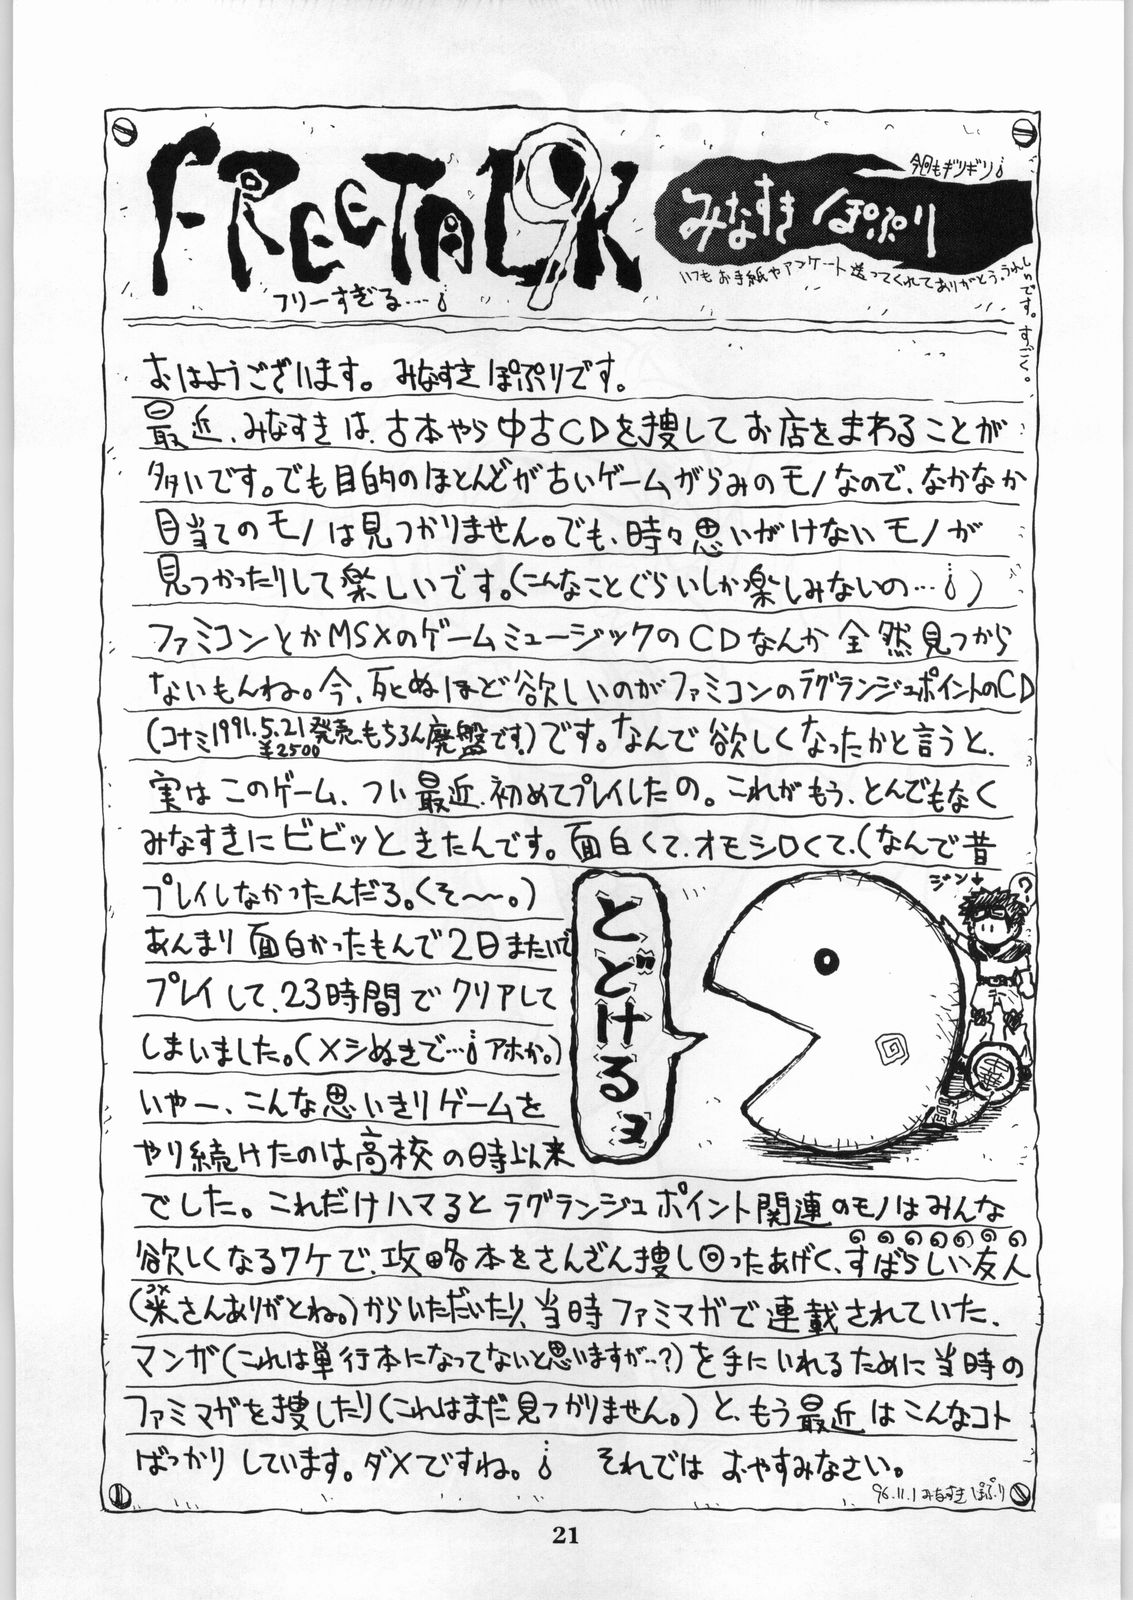 FREETALK 9
フリーすぎる…
みなすき ぽぷり
今回もギリギリ
いつもお手紙やアンケート送ってくれてありがとう。うれしいです。すごく。
おはようございます。みなすき ぽぷりです。
最近、みなすきは、古本やら中古CDを捜してお店をまわることが
多いです。でも目的のほとんどが古いゲームがらみのモノなので、なかなか
目当てのモノは見つかりません。でも、時々思いがけないモノが
見つかったりして楽しいです。(こんなことぐらいしか楽しみないの…)
ファミコンとかMSXのゲームミュージックのCDなんか全然見つから
ないもんね。今、死ぬほど欲しいのがファミコンのラグランジュポイントのCD
(コナミ1991.5.21発売。もちろん廃盤です。)です。なんで欲しくなったかと言うと、
¥2500
実はこのゲーム、つい最近、初めてプレイしたの。これがもう、とんでもなく
みなすきにビビッときたんです。面白くて、オモシロくて、(なんで昔
プレイしなかったんだろ。くそ〜〜。)
あんまり面白かったもんで2日またいで
プレイして、23時間でクリアして
しまいました。(メシぬきで…アホか。)
いやー、こんな思いきりゲームを
やり続けたのは高校の時以来
とどけるヨ
ジン
?
中華
でした。これだけハマるとラグランジュポイント関連のモノはみんな
欲しくなるワケで、攻略本をさんざん捜し回ったあげく、すばらしい友人
(米さんありがとね。)からいただいたり、当時ファミマガで連載されていた、
マンガ(これは単行本になってないと思いますが…?)を手にいれるために当時の
ファミマガを捜したり(これはまだ見つかりません。)と、もう最近はこんなコト
ばっかりしています。ダメですね。 それでは おやすみなさい。
96.11.1 みなすき ぽぷり
21